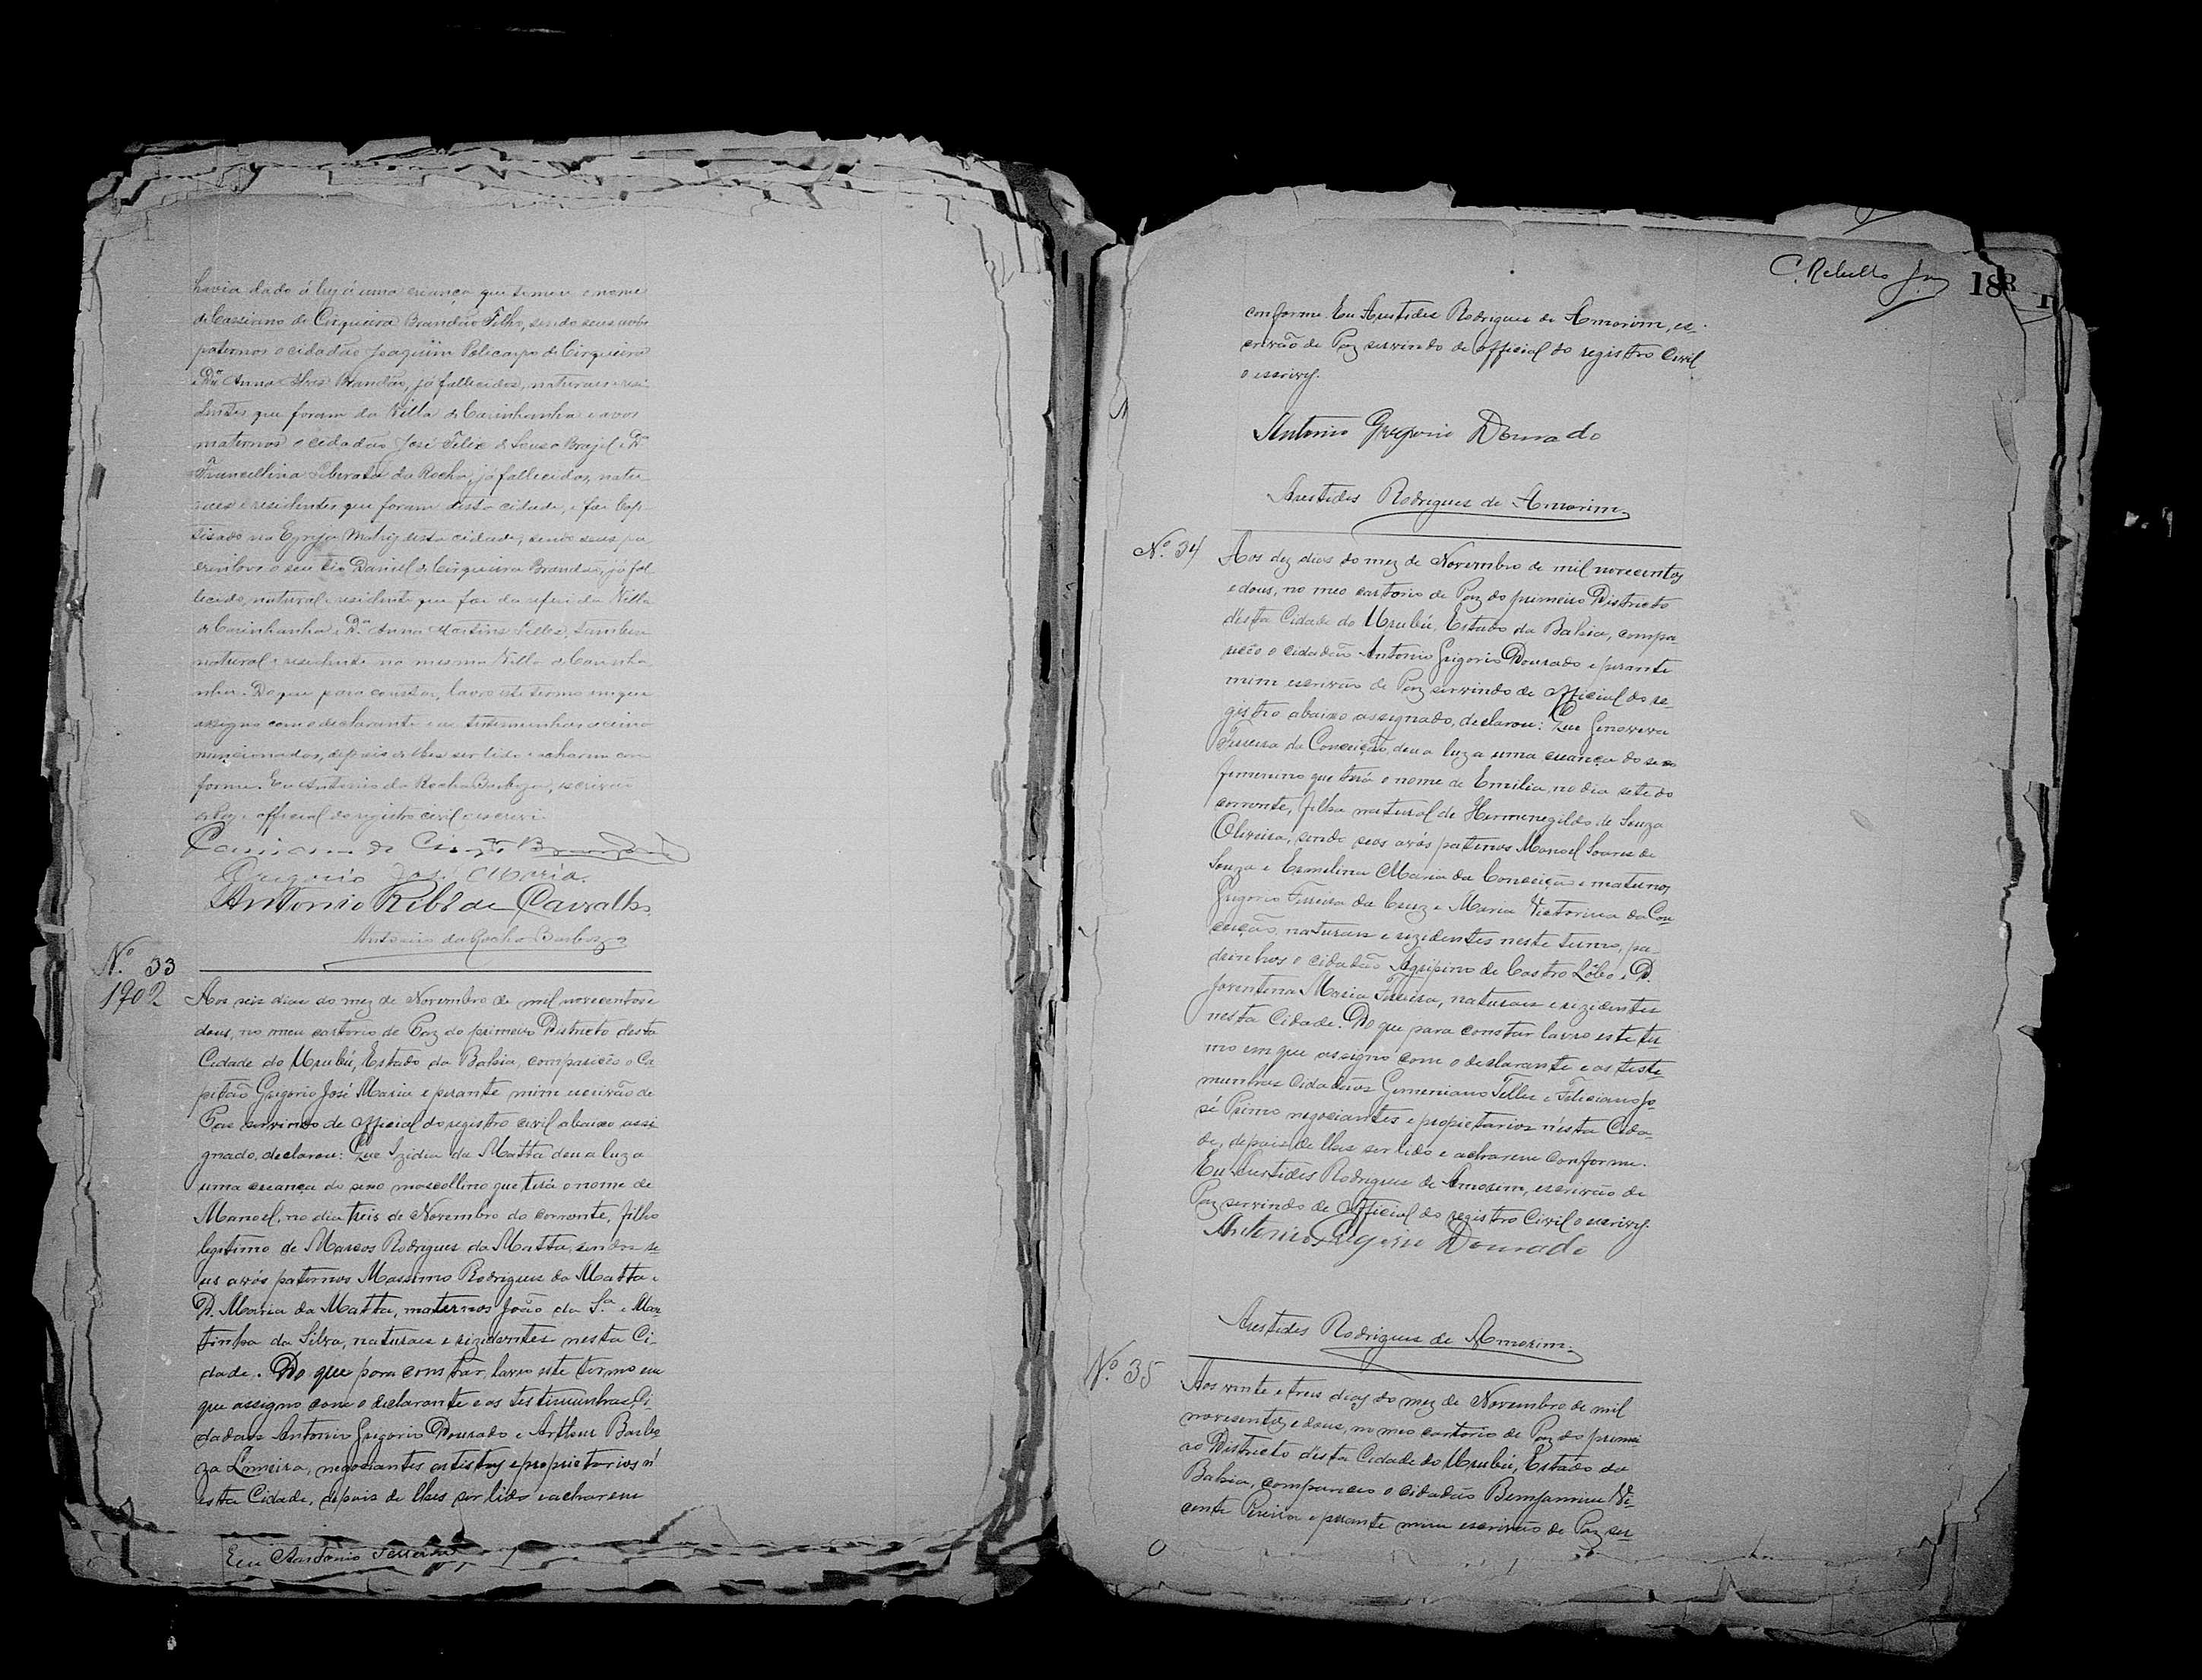 havia dado á luz á uma criança que tomou o nome
de Cassiano de Cirqueira Brandão Filho, sendo seus avós
paternos o cidadão Joaquim Policarpo de Cirqueira
e Dª Anna Alves Brandão, já fallecidos, naturaes e resi-
dentes que foram da Villa de Carinhanha e avos
maternos o cidadão José Felix de Souza Brazil e Dª
Liberata da Rocha, já fallecidos, natu-
raes e residentes que foram desta cidade, e foi bap-
tisado na Egreja Matriz desta cidade, sendo seus pa-
drinhos o seu tio Daniel de Cirqueira Brandão, já fal-
lecido, natural e residente que foi da referida Villa
de Carinhanha e Dª Anna Martins Telles, tambem
natural e residente na mesma Villa de Carinha-
nha. Do que para constar, lavro este termo em que
assigno com o declarante e as testemunhas acima
mencionadas, depois de lhes ser lido e acharem con-
forme. Eu Antonio da Rocha Barboza, escrivão
de Paz e official do registro civil o escrevi.
Cassiano de Cirqª Brandão
Gregorio José Maria.
Antonio Ribº de Carvalho
Antonio da Rocha Barboza
Nº 33
1902
Aos seis dias do mez de Novembro de mil novecentos e
dous, no meu cartorio de Paz do primeiro Districto desta
Cidade do Urubú, Estado da Bahia, compareceo o Ca
pitão Gregorio José Maria e perante mim escrivão de
Paz servindo de official do registro civil abaixo assi
gnado, declarou: Que Izidia da Matta deu a luz a
uma creança do sexo mascollino que terá o nome de
Manoel, no dia treis de Novembro do corrente, filho
legitimo de Marcos Rodrigues da Matta, sendos se
us avós paternos Massimo Rodrigues da Matta e
D. Maria da Matta, maternos João da Sª e Mar
tinha da Silva, naturaes e rezidentes nesta Ci-
dade. Do que para constar, lavro este termo em
que assigno com o declarante e as testimunhas, Ci-
dadãos Antonio Gregorio Dourado e Arthur Barbo
za Lameira, negociantes artistas e proprietarios n'
esta Cidade, depois de lhes ser lido e acharem
Eu Antonio Ferreira
C. Rebello Jor
18
conforme. Eu Arestides Rodrigues de Amorim, es-
crivão de Paz servindo de official do registro Civil
o escrivy.
Antonio Gregorio Dourado
Arestides Rodrigues de Amorim
Nº 34
Aos dez dias do mez de Novembro de mil novecentos
e dous, no meo cartorio de Paz do primeiro Districto
d'esta Cidade do Urubú, Estado da Bahia, compa-
receo o cidadão Antonio Grigorio Dourado e perante
mim escrivão de Paz servindo de official do re-
gistro abaixo assignado, declarou: Que Genoveva
Ferreira da Conceição, deu a luz a uma creança do sexo
femenino que terá o nome de Emilia, no dia sete do
corrente, filha natural de Hermenegildo de Souza
Oliveira, sendo seos avós paternos Manoel Soares de
Souza e Ermelina Maria da Conceição e maternos
Grigorio Ferreira da Cruz e Maria Victorina da Con-
ceição, naturaes e rezidentes neste termo, pa-
drinhos o cidadão Agripino de Castro Lôbo e D.
Joventina Maria Ferreira, naturaes e rezidentes
nesta Cidade. Do que para constar lavro este ter-
mo em que assigno com o declarante e as teste-
munhas Cidadãos Gemeniano Telles e Feliciano Jo-
sé Primo negociantes e propietarios n'ésta Cida-
de, depois de lhes ser lido e acharem conforme.
Eu Arestides Rodrigues de Amorim, escrivão de
Paz servindo de Official do registro Civil o escrivy.
Antonio Gregorio Dourado
Arestides Rodrigues de Amorim.
Nº 35
Aos vinte e treis dias do mez de Novembro de mil
novesentos e dous, no meo cartorio de Paz do primei
ro Districto d'esta Cidade do Urubú, Estado da
Bahia, compareceo o cidadão Bemjamim Vi-
cente Pereira e perante mim escrivão de Paz ser-